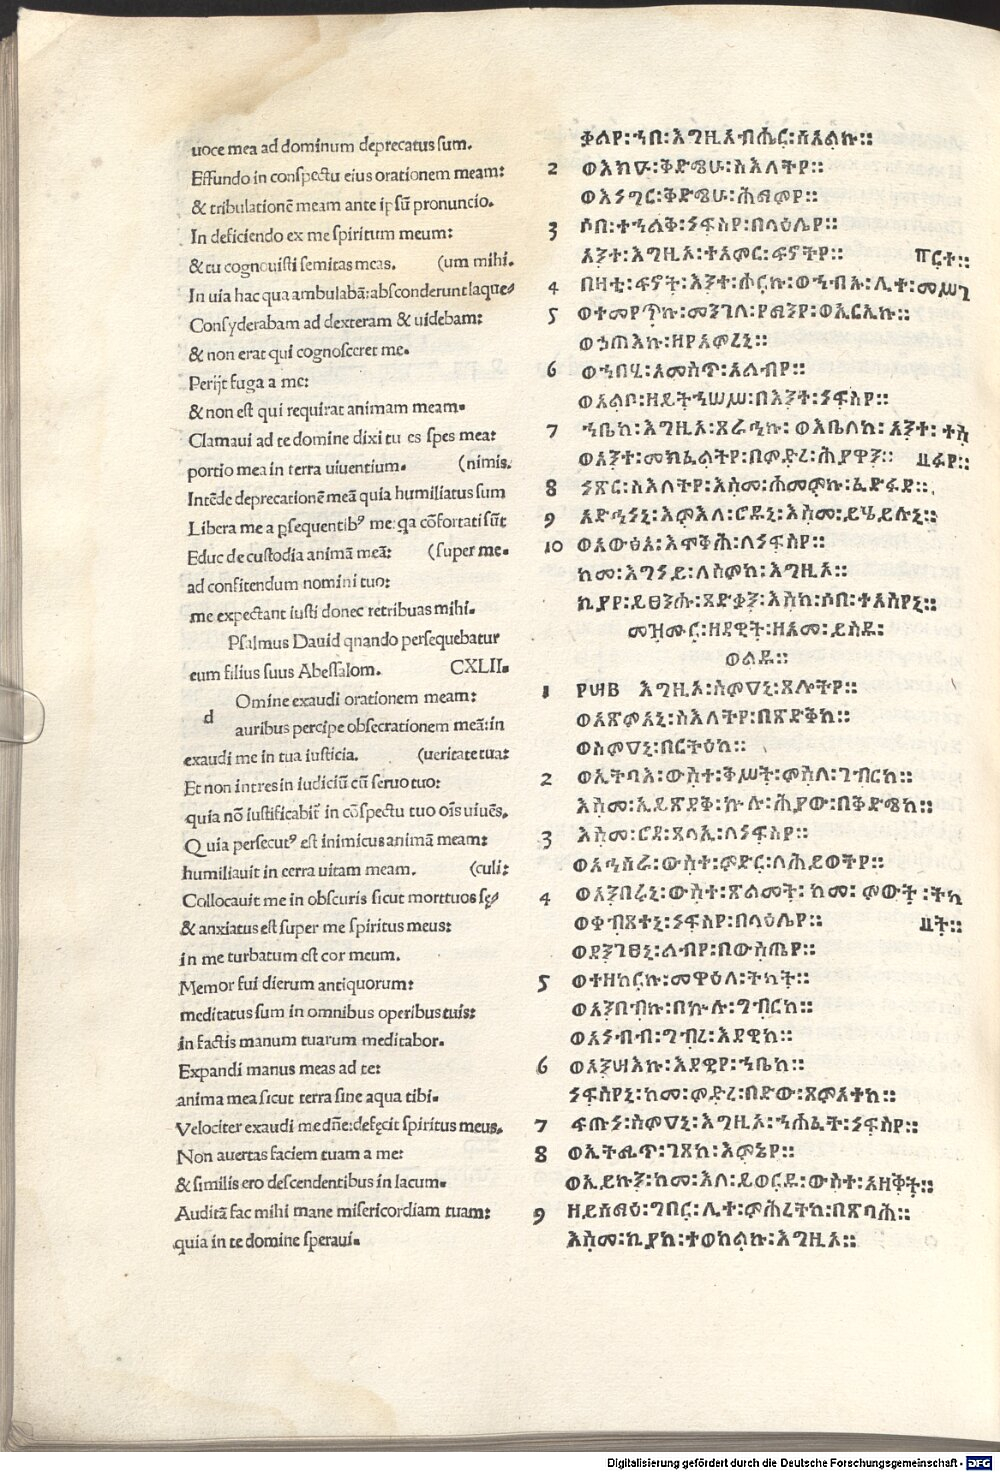 uoce mea ad dominum deprecatus sum.
Effundo in conspectu eius orationem meam:
& tribulationē meam ante ipsū pronuncio.
In deficiendo ex me spiritum meum:
& tu cognouisti semitas meas. (um mihi.
In uia hac qua ambulabā: absconderunt laque
Consyderabam ad dexteram & uidebam:
& non erat qui cognosceret me.
Perijt fuga a me:
& non est qui requirat animam meam.
Clamaui ad te domine dixi tu es spes mea:
portio mea in terra uiuentium. (nimis.
Intēde deprecationē meā quia humiliatus sum
Libera me a ꝑsequentibꝰ me: qa cōfortati sūt
Educ de custodia animā meā: (super me.
ad confitendum nomini tuo:
me expectant iusti donec retribuas mihi.
Psalmus Dauid quando persequebatur
eum filius suus Abessalom. CXLII.
d Omine exaudi orationem meam:
auribus percipe obsecrationem meā: in
exaudi me in tua iusticia. (ueritate tua:
Et non intres in iudiciū cū seruo tuo:
quia nō iustificabit̄ in cōspectu tuo oīs uiuēs.
Quia persecutꝰ est inimicus animā meam:
humiliauit in terra uitam meam. (culi:
Collocauit me in obscuris sicut mortuos sę
& anxiatus est super me spiritus meus:
in me turbatum est cor meum.
Memor fui dierum antiquorum:
meditatus sum in omnibus operibus tuis:
in factis manum tuarum meditabor.
Expandi manus meas ad te:
anima mea sicut terra sine aqua tibi.
Velociter exaudi me dn̄e: defęcit spiritus meus.
Non auertas faciem tuam a me:
& similis ero descendentibus in lacum.
Auditā fac mihi mane misericordiam tuam:
quia in te domine speraui.
ቃልየ፡ኀበ፡እግዚአብሔር፡ሰአልኩ።
2 ወእክዑ፡ቅድሜሁ፡ስእለትየ።
ወእነግር፡ቅድሜሁ፡ሕማምየ።
3 ሶበ፡ተኀልቅ፡ነፍስየ፡በላዕሌየ።
አንተ፡እግዚአ፡ተአምር፡ፍኖትየ። ርተ።
4 በዛቲ፡ፍኖት፡እንተ፡ሖርኩ፡ወኀብኡ፡ሊተ፡መሥገ
5 ወተመየጥኩ፡መንገለ፡የማንየ፡ወእርኢኩ።
ወኃጣእኩ፡ዘየአምረኒ።
6 ወኀበሂ፡አመስጥ፡አልብየ።
ወአልቦ፡ዘይትኀሠሣ፡በእንተ፡ነፍስየ።
7 ኀቤከ፡እግዚአ፡ጸራኅኩ፡ወእቤለከ፡አንተ፡ተስ
ወአንተ፡መክፈልትየ፡በምድረ፡ሕያዋን። ፋየ።
8 ነጽር፡ስእለትየ፡እስመ፡ሐመምኩ፡ፈድፋደ።
9 አድኅነኒ፡እምእለ፡ሮዱኒ፡እስመ፡ይሄይሉኒ።
10 ወአውፅአ፡እሞቅሕ፡ለነፍስየ።
ከመ፡እግነይ፡ለስምከ፡እግዚአ።
ኪያየ፡ይፀንሑ፡ጻድቃን፡እስከ፡ሶበ፡ተአስየኒ።
መዝሙር፡ዘዳዊት፡ዘአመ፡ይሰዶ፡
ወልዱ።
1 ፻፵፪ እግዚአ፡ስምዐኒ፡ጸሎትየ።
ወአጽምአኒ፡ስእለትየ፡በጽድቅከ።
ወስምዐኒ፡በርትዕከ።
2 ወኢትባእ፡ውስተ፡ቅሥት፡ምስለ፡ገብርከ።
እስመ፡ኢይጸድቅ፡ኩሉ፡ሕያው፡በቅድሜከ።
3 እስመ፡ሮዳ፡ጸላኢ፡ለነፍስየ።
ወአኅሰራ፡ውስተ፡ምድር፡ለሕይወትየ።
4 ወአንበረኒ፡ውስተ፡ጽልመት፡ከመ፡ምውት፡ትካ
ወቆብጸተኒ፡ነፍስየ፡በላዕሌየ። ት።
ወደንገፀኒ፡ልብየ፡በውስጤየ።
5 ወተዘከርኩ፡መዋዕለ፡ትካት።
ወአንበብኩ፡በኩሉ፡ግብርከ።
ወአነብብ፡ግብረ፡እደዊከ።
6 ወአንሣእኩ፡እደዊየ፡ኀቤከ።
ነፍስየኒ፡ከመ፡ምድረ፡በድው፡ጸምአተከ።
7 ፍጡነ፡ስምዐኒ፡እግዚአ፡ኀሕፈት፡ነፍስየ።
8 ወኢትሚጥ፡ገጸከ፡እምኔየ።
ወኢይኩን፡ከመ፡እለ፡ይወርዱ፡ውስተ፡አዘቅት።
9 ዘይሰማዕ፡ግበር፡ሊተ፡ምሕረትከ፡በጽባሕ።
እስመ፡ኪያከ፡ተወከልኩ፡እግዚአ።
Digitalisierung gefördert durch die Deutsche Forschungsgemeinschaft - DFG